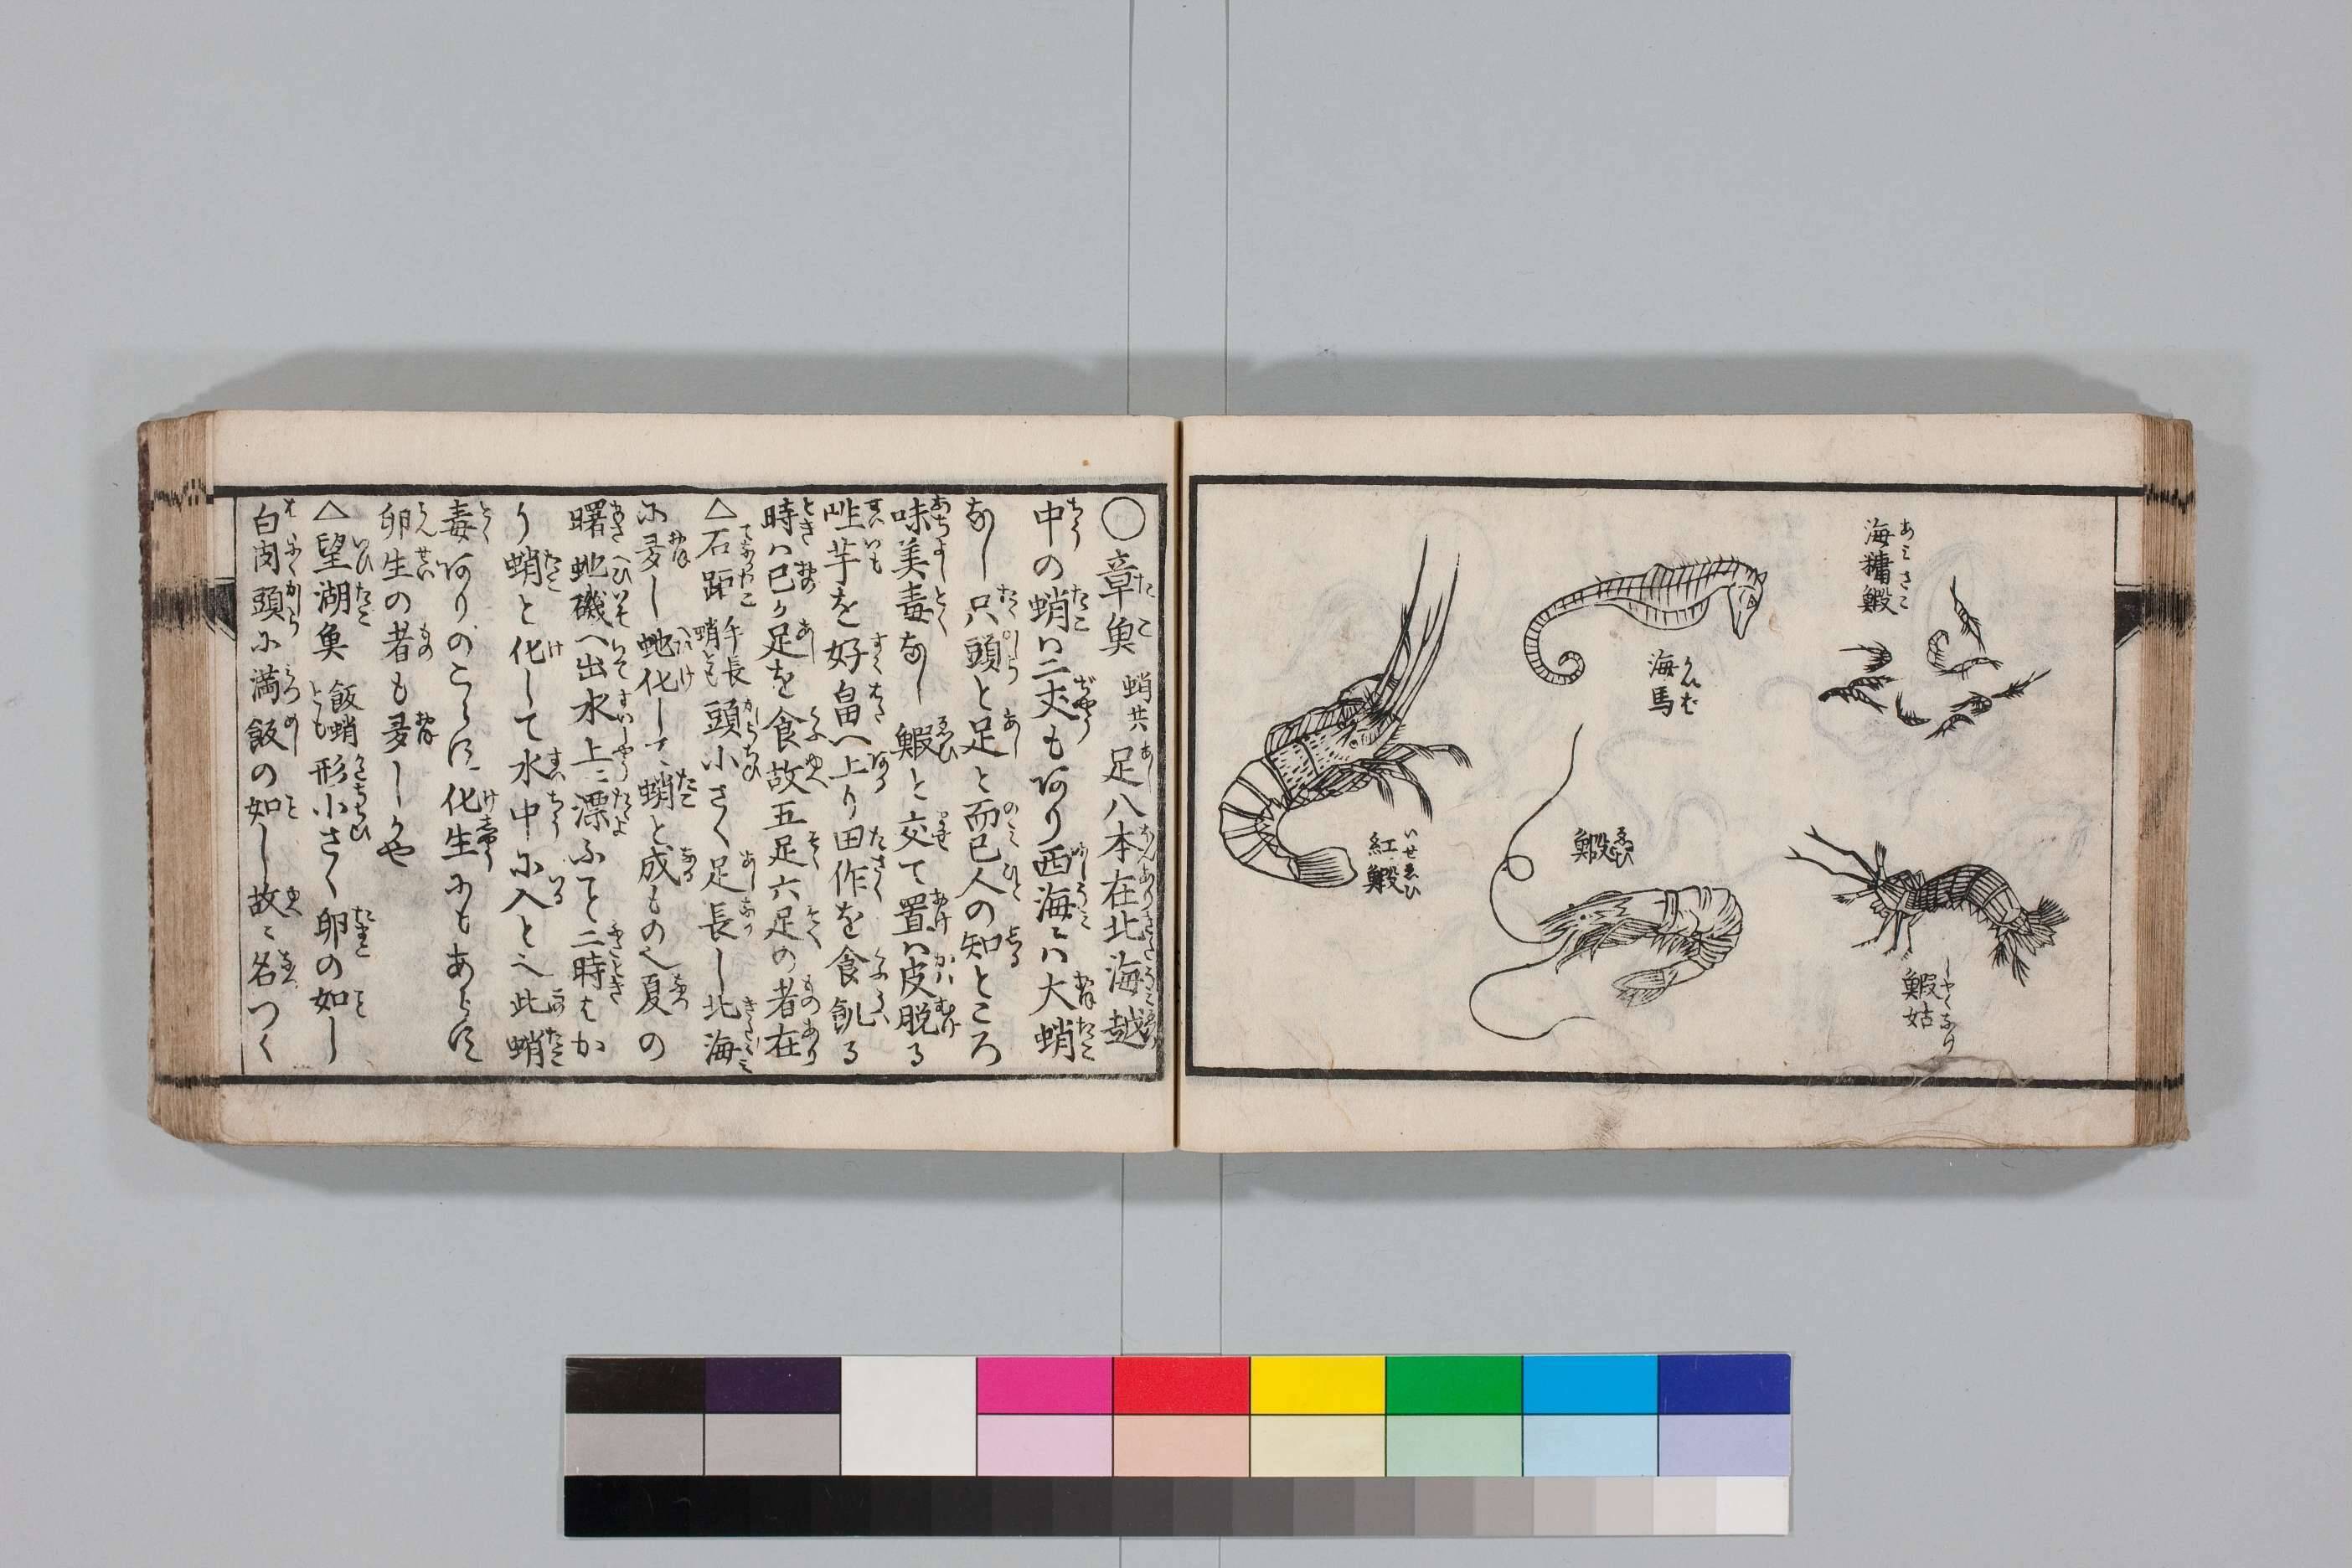 海糠鰕
あみさこ
鰕姑
しやくなけ
海馬
かいば
鰕
ゑび
紅鰕
いせゑひ
〇章魚 蛸共 足八本在北海越
中の蛸ハ二丈も有り西海にハ大蛸
なし只頭と足と而已人の知ところ
味美毒なし鰕と交て置ハ皮脱る
性芋を好畠へ上り田作を食飢る
時ハ己か足を食故五足六足の者在
△石距 手長蛸とも 頭小さく足長し北海
に多し蛇化して蛸と成もの也夏の
曙蛇磯へ出水上に漂ふと二時はか
り蛸と化して水中に入と云此蛸
毒有りのこらす化生にもあらす
卵生の者も多しとや
△望湖魚 飯蛸とも 形小さく卵の如し
白肉頭に満飯の如し故に名つく